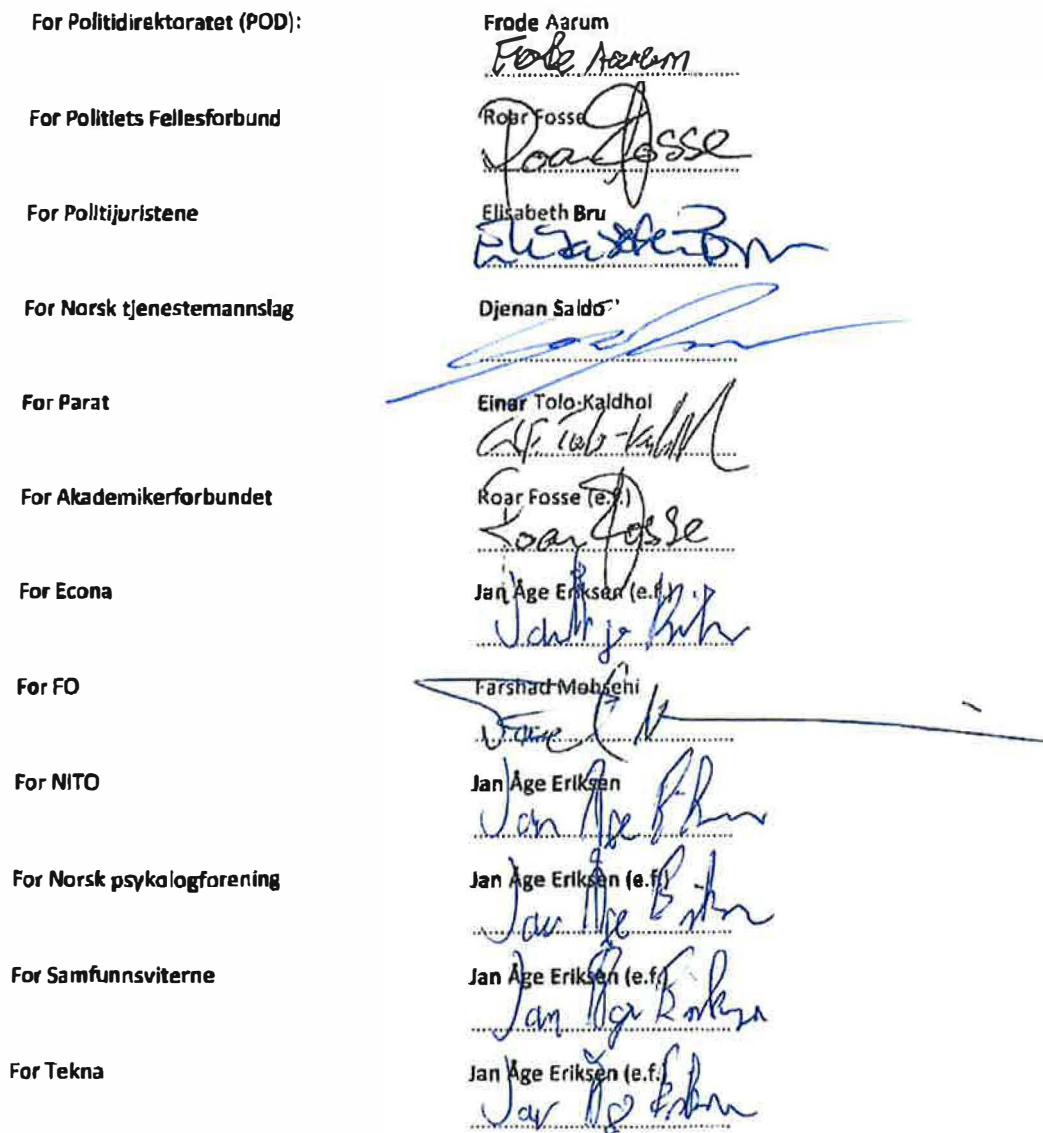 For Politidirektoratet (POD): Frode Aarum
Frode Aarum
For Politiets Fellesforbund Roar Fosse
Roar Fosse
For Politijuristene Elisabeth Bru
Elisabeth Bru
For Norsk tjenestemannslag Djenan Saldo
For Parat Einar Tolo-Kaldhol
Tolo-Kaldhol
For Akademikerforbundet Roar Fosse (e.f.)
Roar Fosse
For Econa Jan Åge Eriksen (e.f.)
Jan Åge Eriksen
For FO Farshad Mohseni
For NITO Jan Åge Eriksen
Jan Åge Eriksen
For Norsk psykologforening Jan Åge Eriksen (e.f.)
Jan Åge Eriksen
For Samfunnsviterne Jan Åge Eriksen (e.f.)
Jan Åge Eriksen
For Tekna Jan Åge Eriksen (e.f.)
Jan Åge Eriksen